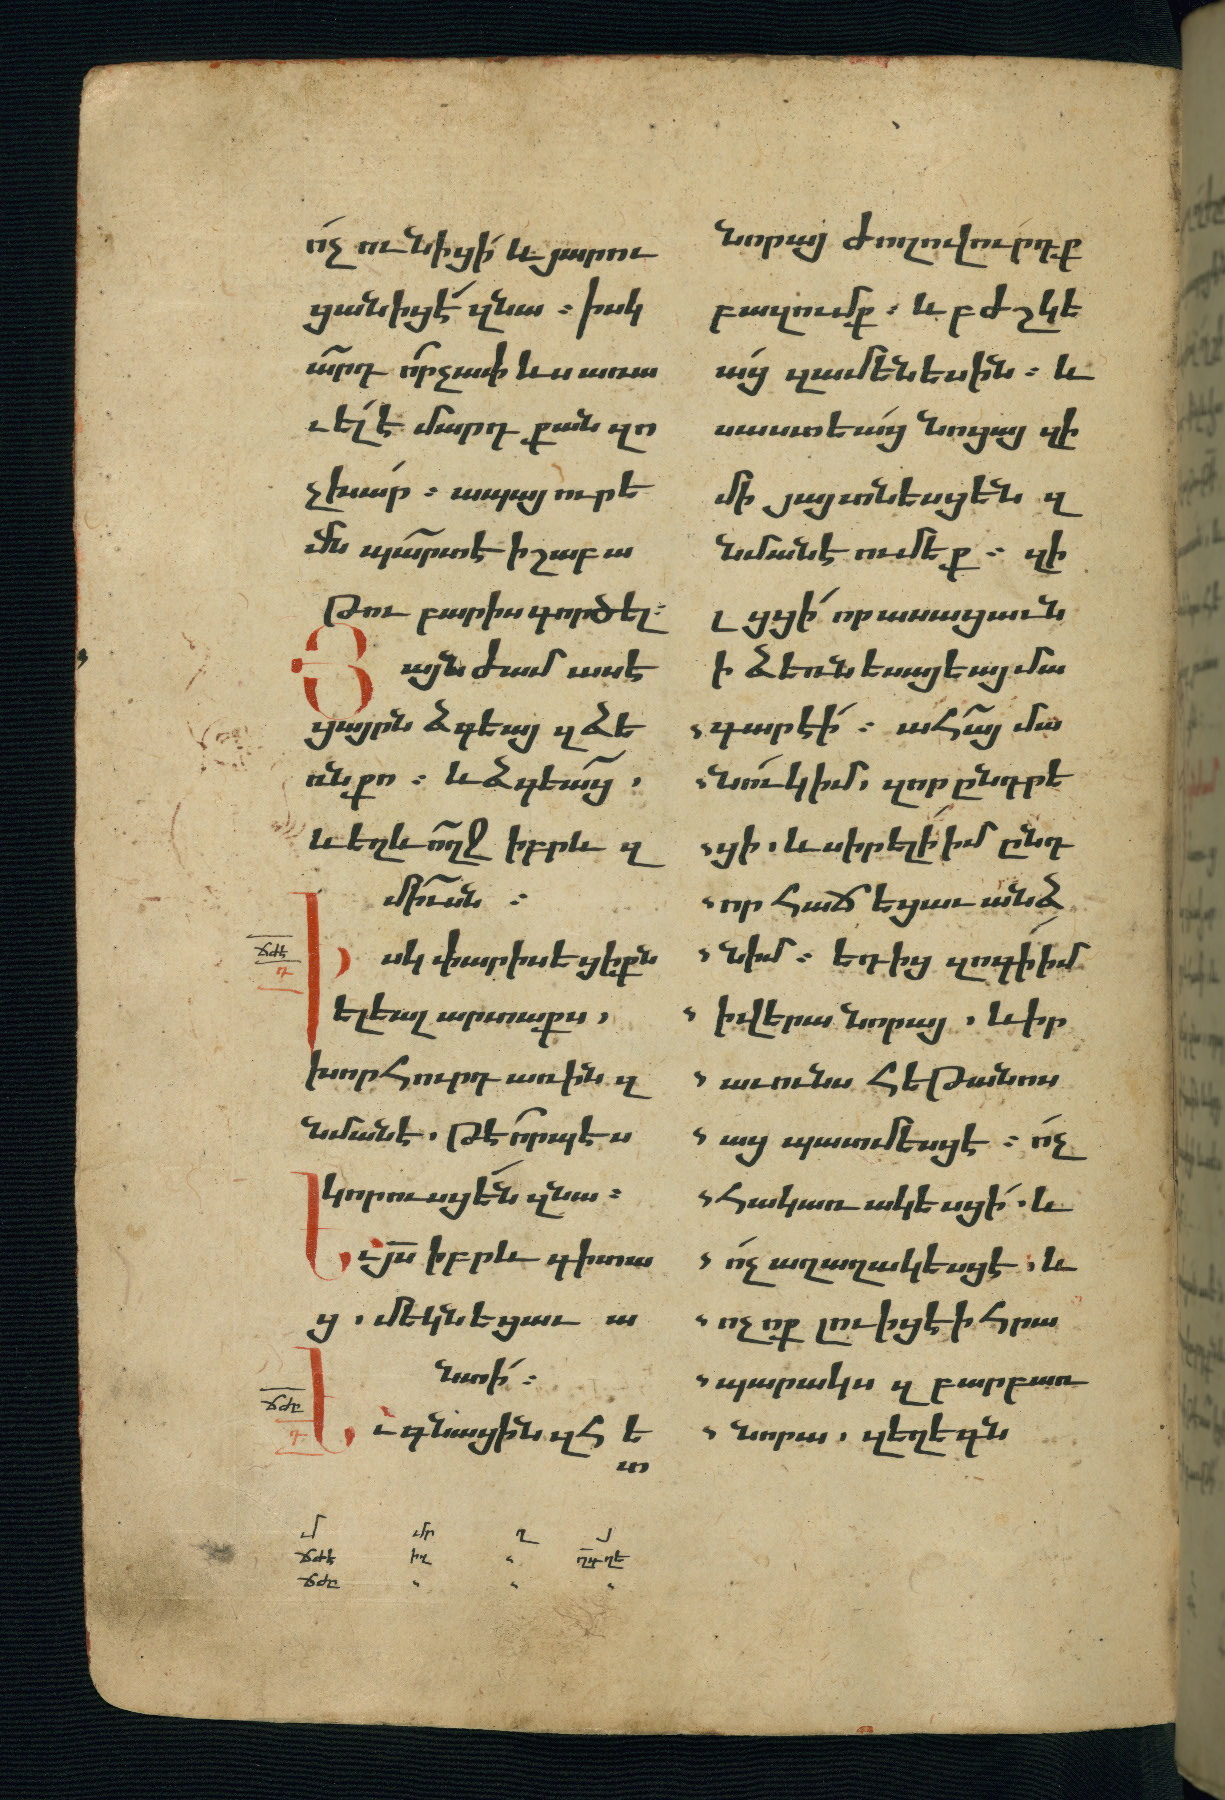 ո՛չ ունիցի՛ և յարու
ցանիցէ՛ զնա ։ իսկ
ա՞րդ ո՞րչափ ևս առա
ւել է մարդ քան զո
չխար ։ ապա յուրե
մն պա՞րտ է ի շաբա
թու բարիս գործել ։
Յայնժամ ասէ
ցայրն ձգեայ զձե
ռն քո ։ և ձգեա՛ց ,
և եղև ո՛ղջ իբրև զ
միւսն ։
Իսկ փարիսեցիքն
ելեալ արտաքս ,
խորհուրդ առին զ
նմանէ , թէ ո՞րպէս
կորուսցե՛ն զնա ։
Եւ յ̅ս իբրև գիտա
ց , մեկնեցաւ ա
նտի՛ ։
Եւ գնացին զհե
տ
նորայ ժողովուրդք
բազումք ։ և բժշկե
ա՛ց զամենեսին ։ և
սաստեա՛ց նոցայ զի
մի յայտնեսցեն զ
նմանէ ումեք ։ զի
լցցի՛ որ ասացաւն
ի ձեռն եսայեայ մա
րգարէի՛ ։ ահա՛յ մա
նուկ իմ , զոր ընտրե
ցի , և սիրելի՛ իմ ընդ
որ հաճեցաւ անձ
ն իմ ։ եդից զոգի՛ իմ
ի վերա նորայ , և իր
աւունս հեթանոս
աց պատմեսցէ ։ ո՛չ
հակառակեսցի՛ , և
ո՛չ աղաղակեսցէ , և
ոչ ոք լուիցէ ի հրա
պարակս զբարբառ
նորա , զեղեգն
ճժէ
դ
ճժը
դ
մ մր ղ յ
ճժէ
ճժը